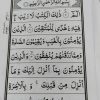 بِسْمِ اللّٰهِ الرَّحْمٰنِ الرَّحِيْمِ
الٓمّٓ ذٰلِكَ الْكِتٰبُ لَا رَيْبَ
فِيْهِ هُدًى لِّلْمُتَّقِيْنَ الَّذِيْنَ
يُؤْمِنُوْنَ بِالْغَيْبِ وَيُقِيْمُوْنَ الصَّلٰوةَ
وَمِمَّا رَزَقْنٰهُمْ يُنْفِقُوْنَ وَالَّذِيْنَ
يُؤْمِنُوْنَ بِمَآ اُنْزِلَ اِلَيْكَ وَمَآ
اُنْزِلَ مِنْ قَبْلِكَ وَبِالْاٰخِرَةِ